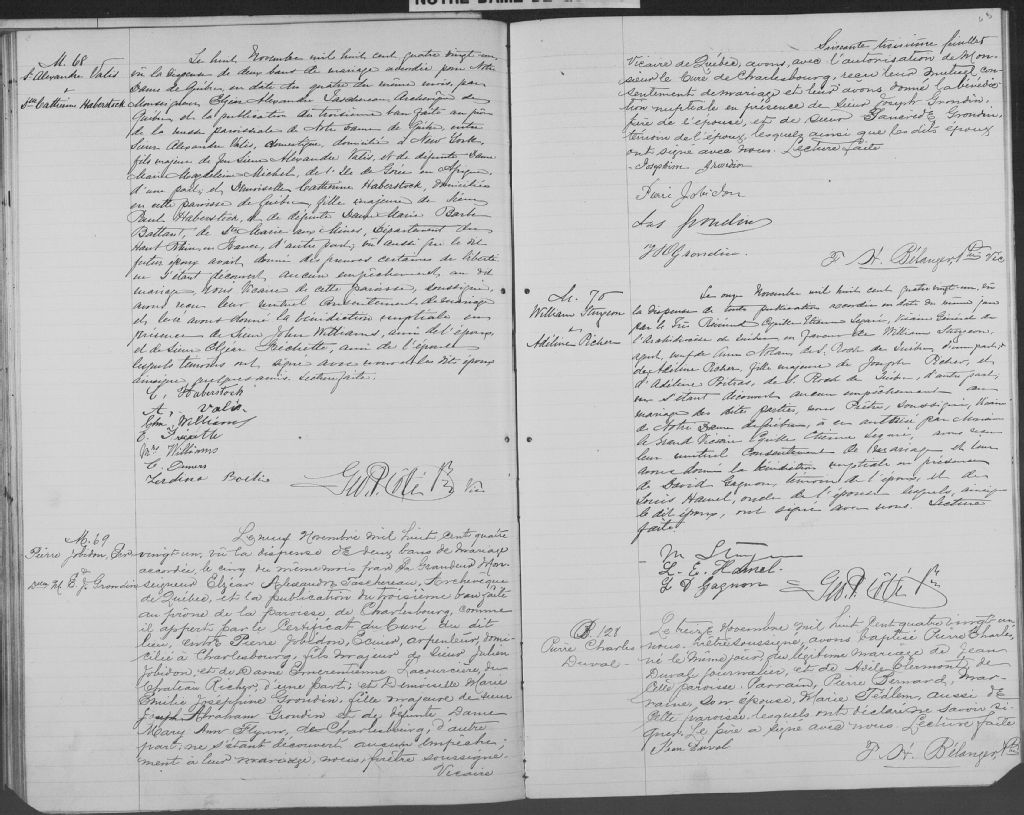 NOTRE DAME DE
M. 68
Sr Alexandre Valis
&
Dlle Catherine Haberstock
Le huit Novembre mil huit cent quatre vingt-un,
vu la dispense de deux bans de mariage accordée par Notre
Dame de Québec, en date du quatre du même mois, par
Monseigneur Elzéar Alexandre Taschereau Archevêque de
Québec et la publication du troisième ban faite au prône
de la messe paroissiale de Notre Dame de Québec, entre
Sieur Alexandre Valis, domestique, domicilié à New York,
fils majeur de feu Sieur Alexandre Valis, et de défunte Dame
Marie Magdeleine Michel, de l'Ile de Gorée en Afrique,
d'une part; et Demoiselle Catherine Haberstock, domiciliée
en cette paroisse de Québec, fille majeure de Sieur
Paul Haberstock, et de défunte Dame Marie Barbe
Battant, de Ste Marie aux Mines, Département du
Haut Rhin, en France, d'autre part; vu aussi que le dit
futur époux avait donné des preuves certaines de liberté
ne s'étant découvert aucun empêchement au dit
mariage, Nous Vicaire de cette paroisse, soussigné,
avons reçu leur mutuel consentement de mariage
et leur avons donné la bénédiction nuptiale en
présence de Sieur John Williams, ami de l'époux,
et de Sieur Elzéar Fréchette, ami de l'épouse
lesquels témoins ont signé avec nous et les dits époux
ainsi que quelques amis. Lecture faite.
C. Haberstock
A. Valis
Williams
E.
Mrs Williams
E.
Geo. P. Côté Ptre Vic

M. 69
Pierre Jobidon, Ecr
&
Dlle M. E. J. Grondin
Le neuf Novembre mil huit cent quatre
vingt un, vu la dispense de deux bans de mariage
accordée, le cinq du même mois par Sa Grandeur Mon-
seigneur Elzéar Alexandre Taschereau, Archevêque
de Québec, et la publication du troisième ban faite
au prône de la paroisse de Charlesbourg, comme
il appert par le Certificat du Curé du dit
lieu, entre Pierre Jobidon, Ecuier, arpenteur, domi-
cilié à Charlesbourg, fils majeur de Sieur Julien
Jobidon, et de Dame Emerentienne Lacourcière, du
Chateau Richer, d'une part; et Demoiselle Marie
Emilie Josephine Grondin, fille majeure de Sieur
Joseph Abraham Grondin et de défunte Dame
Mary Ann Flynn, de Charlesbourg, d'autre
part; ne s'étant découvert aucun empêche-
ment à leur mariage, nous, prêtre soussigné
Vicaire

Soixante troisième feuillet
Vicaire de Québec, avons, avec l'autorisation de Mon-
sieur le Curé de Charlesbourg, reçu leur mutuel con-
sentement de mariage et leur avons donné la bénédic-
tion nuptiale en présence de Sieur Joseph Grondin,
père de l'épouse, et de Sieur Tancrède Grondin,
témoin de l'époux, lesquels ainsi que les dits époux
ont signé avec nous. Lecture faite
Josephine Grondin
Pierre Jobidon
Jos Grondin
Grondin.
F. X. Bélanger, Ptre Vic

M. 70
William Sturgeon
&
Adéline Picher
Le onze Novembre mil huit cent quatre vingt-un, vu
la dispense de toute publication accordée en date du même jour
par le Très Révérend Cyrille Etienne Légaré, Vicaire Général de
l'Archidiocèse de Québec en faveur de William Sturgeon,
veuf de Ann Nolan, de St. Roch de Québec, d'une part, &
de Adéline Picher, fille majeure de Joseph Picher, et
d'Adéline Poitras, de St. Roch de Québec, d'autre part;
ne s'étant découvert aucun empêchement au
mariage des dites parties, nous Prêtre, soussigné, Vicaire
de Notre Dame de Québec, à ce autorisé par Messire
le Grand Vicaire Cyrille Etienne Légaré, avons reçu
leur mutuel Consentement de Mariage et leur
avons donné la bénédiction nuptiale en présence
de David Gagnon, témoin de l'époux, et de
Louis Hamel, oncle de l'épouse lesquels, ainsi que
le dit époux, ont signé avec nous. Lecture
faite.
L. E. Hamel
D Gagnon
Geo. P. Côté Ptre

B. 128
Pierre Charles
Duval
Le treize Novembre mil huit cent quatre vingt un
nous, prêtre soussigné, avons baptisé Pierre Charles,
né le même jour, du légitime mariage de Jean
Duval journalier, et de Adèle Clermont, de
cette paroisse. Parrain, Pierre Bernard, Mar-
raine, son épouse, Marie, aussi de
cette paroisse, lesquels ont déclaré ne savoir si-
gner. Le père a signé avec nous. Lecture faite
Jean Duval
F. X. Bélanger, Ptre